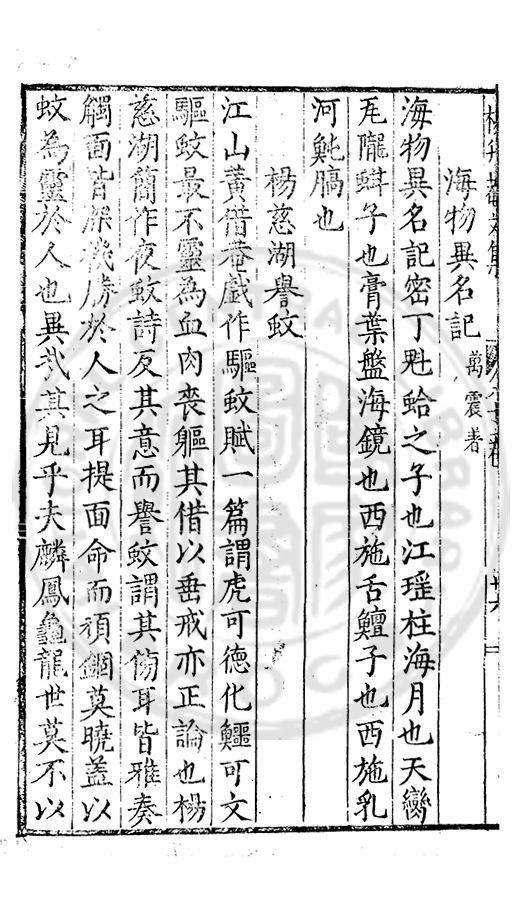 海物異名記 萬震著
海物異名記密丁魁蛤之子也江瑶柱海月也天臠
瓦隴蚶子也膏葉盤海鏡也西施舌鱣子也西施乳
河魨膓也
楊慈湖譽蚊
江山黃借菴戲作驅蚊賦一篇謂虎可德化鱷可文
驅蚊最不靈為血肉喪軀其借以垂戒亦正論也楊
慈湖簡作夜蚊詩反其意而譽蚊謂其傍耳皆雅奏
觸面皆深機勝於人之耳提面命而頑錮莫曉盖以
蚊為靈於人也異哉其見乎夫麟鳳龜龍世莫不以